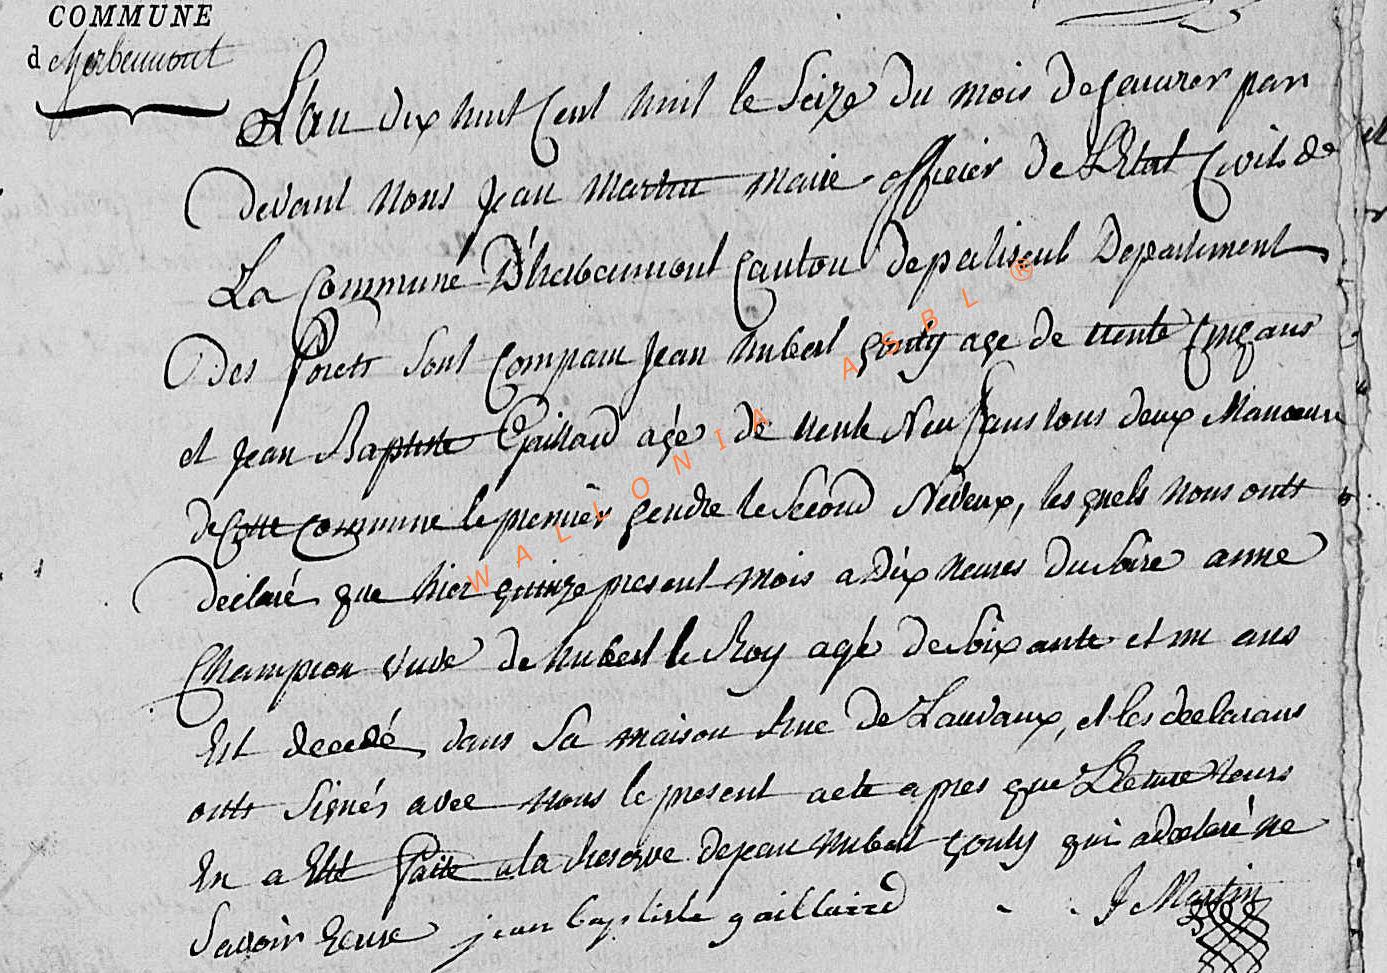 COMMUNE
d herbeumont
L'an dix huit Cent huit le Seize du mois de Janvier par
devant Nous Jean Martin Maire officier de L'Etat Civil de
La Commune D'herbeumont Canton de paliseul Departement
Des Forets Sont Comparu Jean hubert gouty age de trente Cinq ans
et Jean Baptiste Gaillard agé de trente Neuf ans tous deux Manoeuvre
de Cette Commune le premier gendre le Second Neveux, les quels Nous onts
declaré que hier quinze present mois a Dix heures du Soire anne
Champion veuve de hubert le Roy agé de Soixante et un ans
Est decedé dans Sa maison Rue de Lauvaux, et les declarans
onts Signés avec nous le present acte apres que Lecture leurs
En a Eté faite a la Reserve de jean hubert gouty qui a declaré ne
Savoir Ecrire jean baptiste gaillaird J Martin
WALLONIA ASBL ®